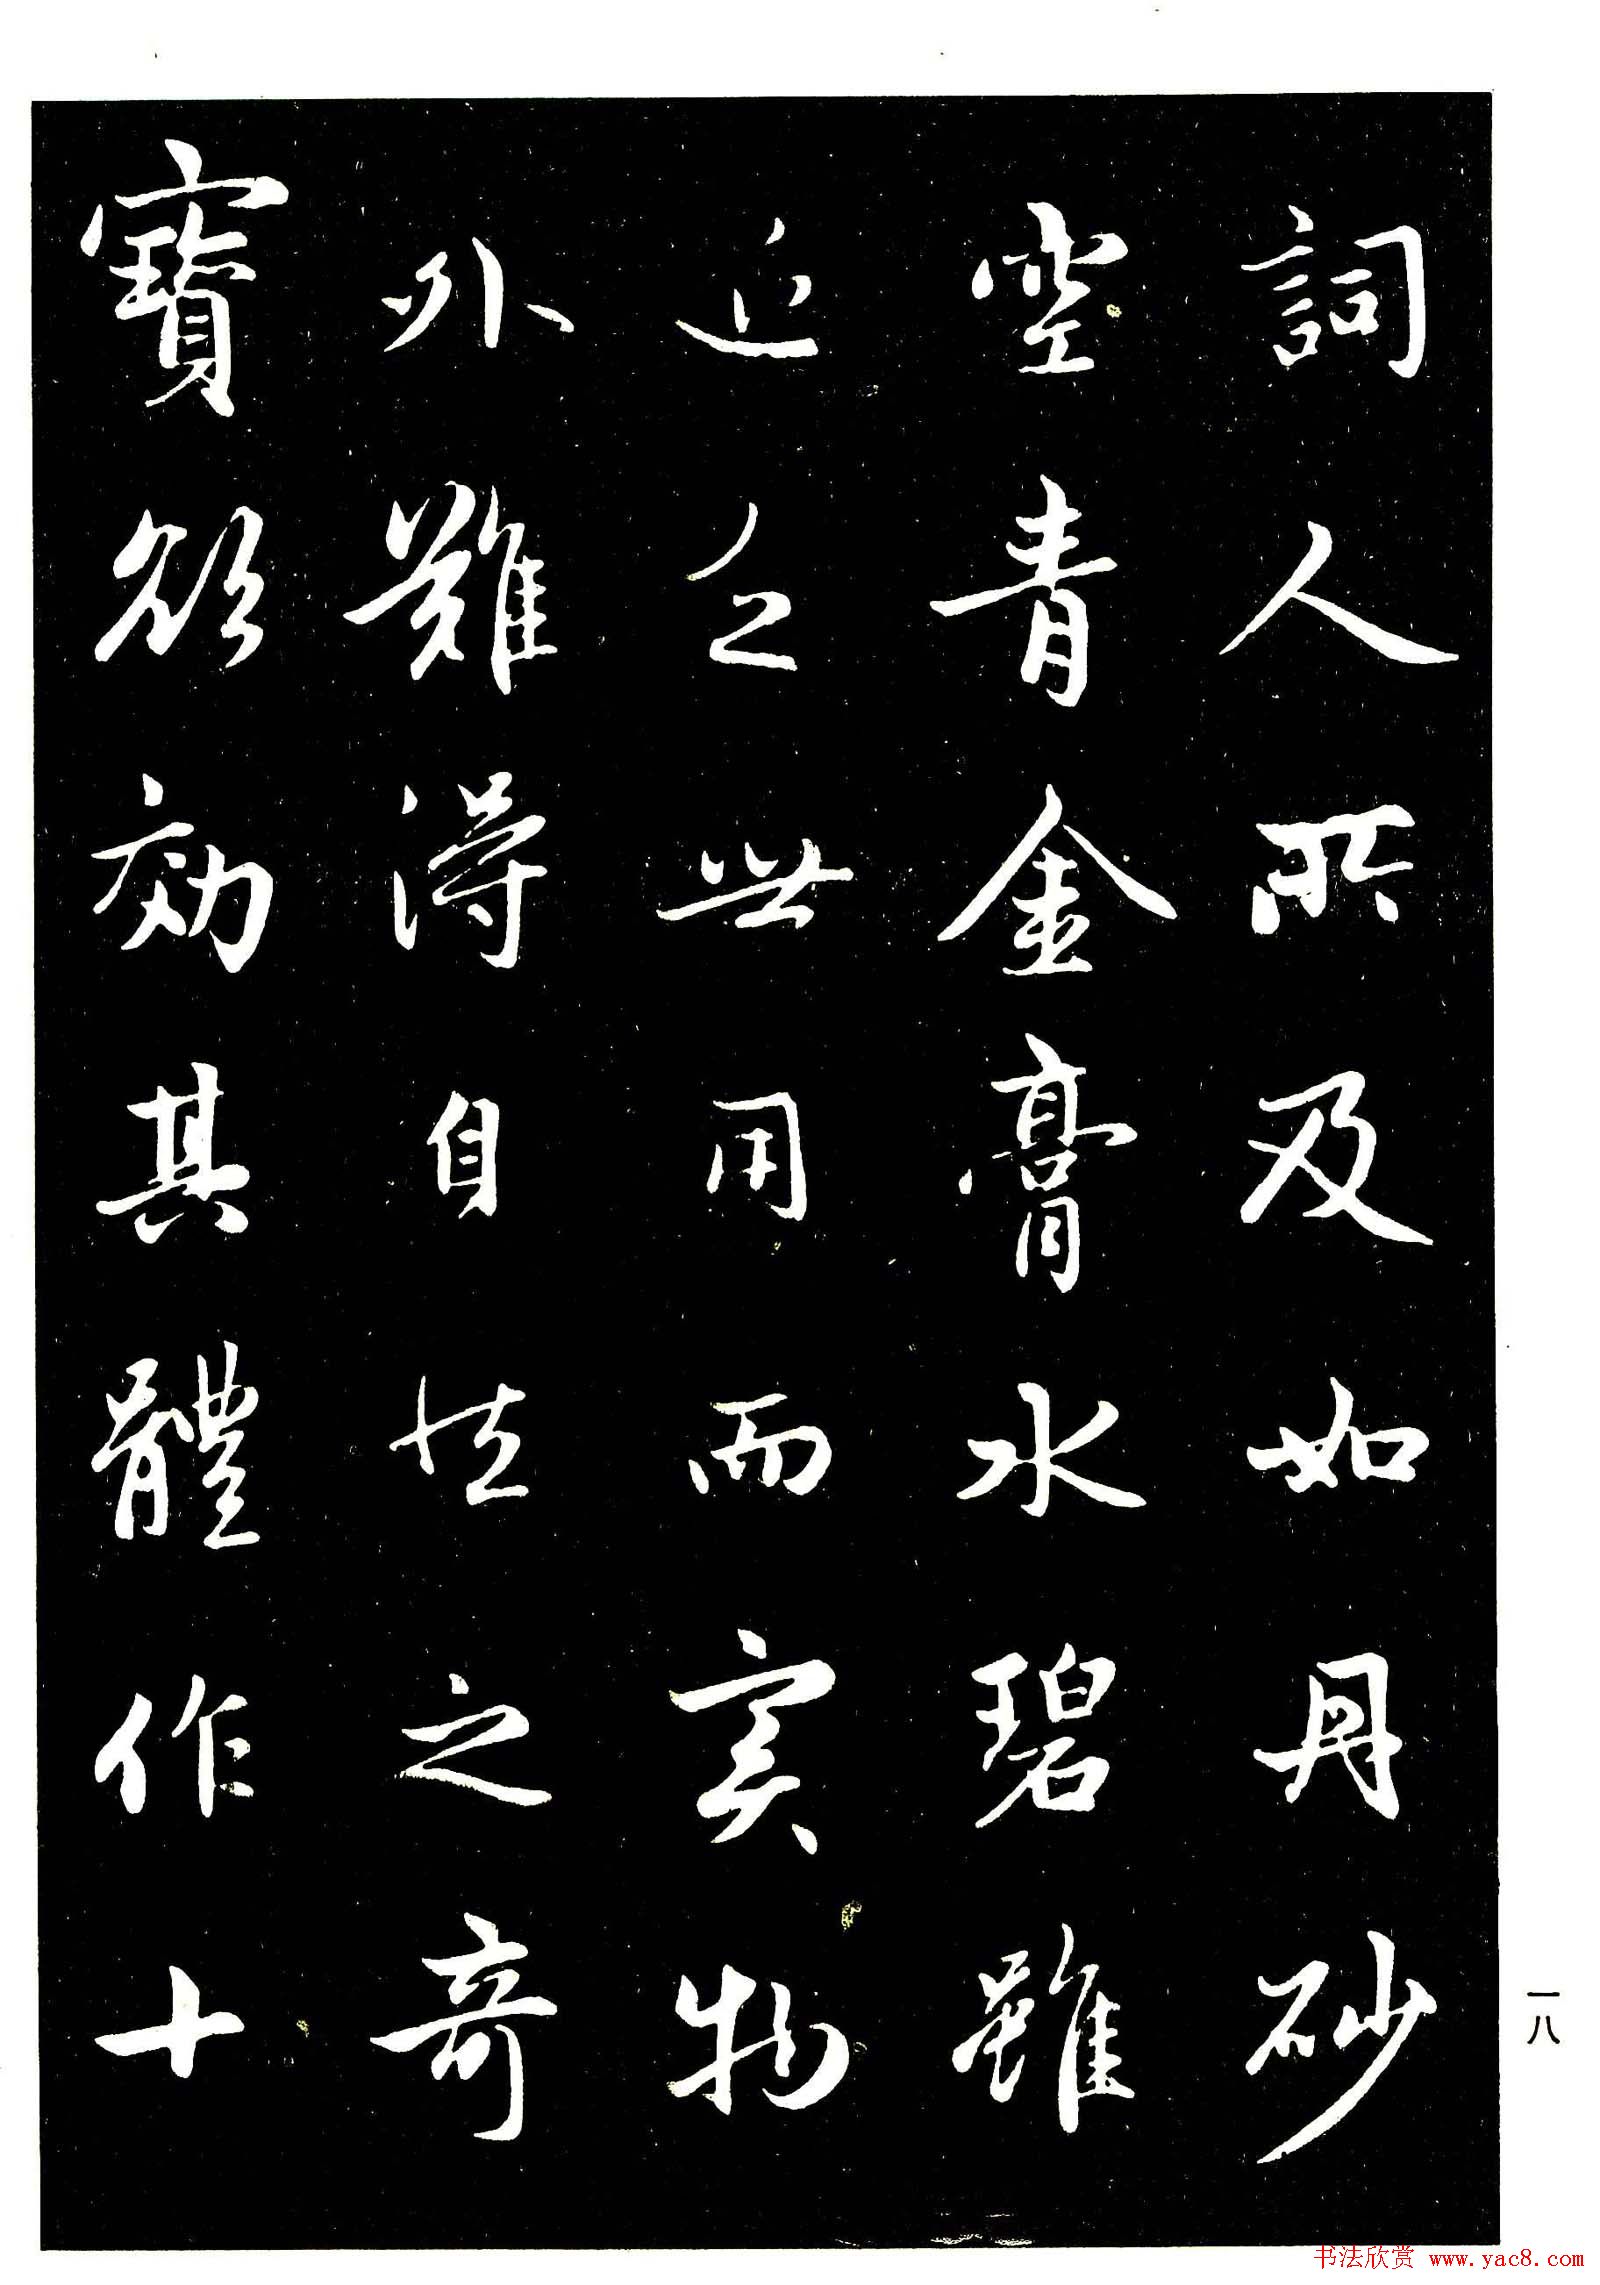 詞人所及如丹砂
空青金膏水碧雖
近亡世用而實物
外難得自性之奇
寶欲効其體作十
一八
书法欣赏 www.yac8.com